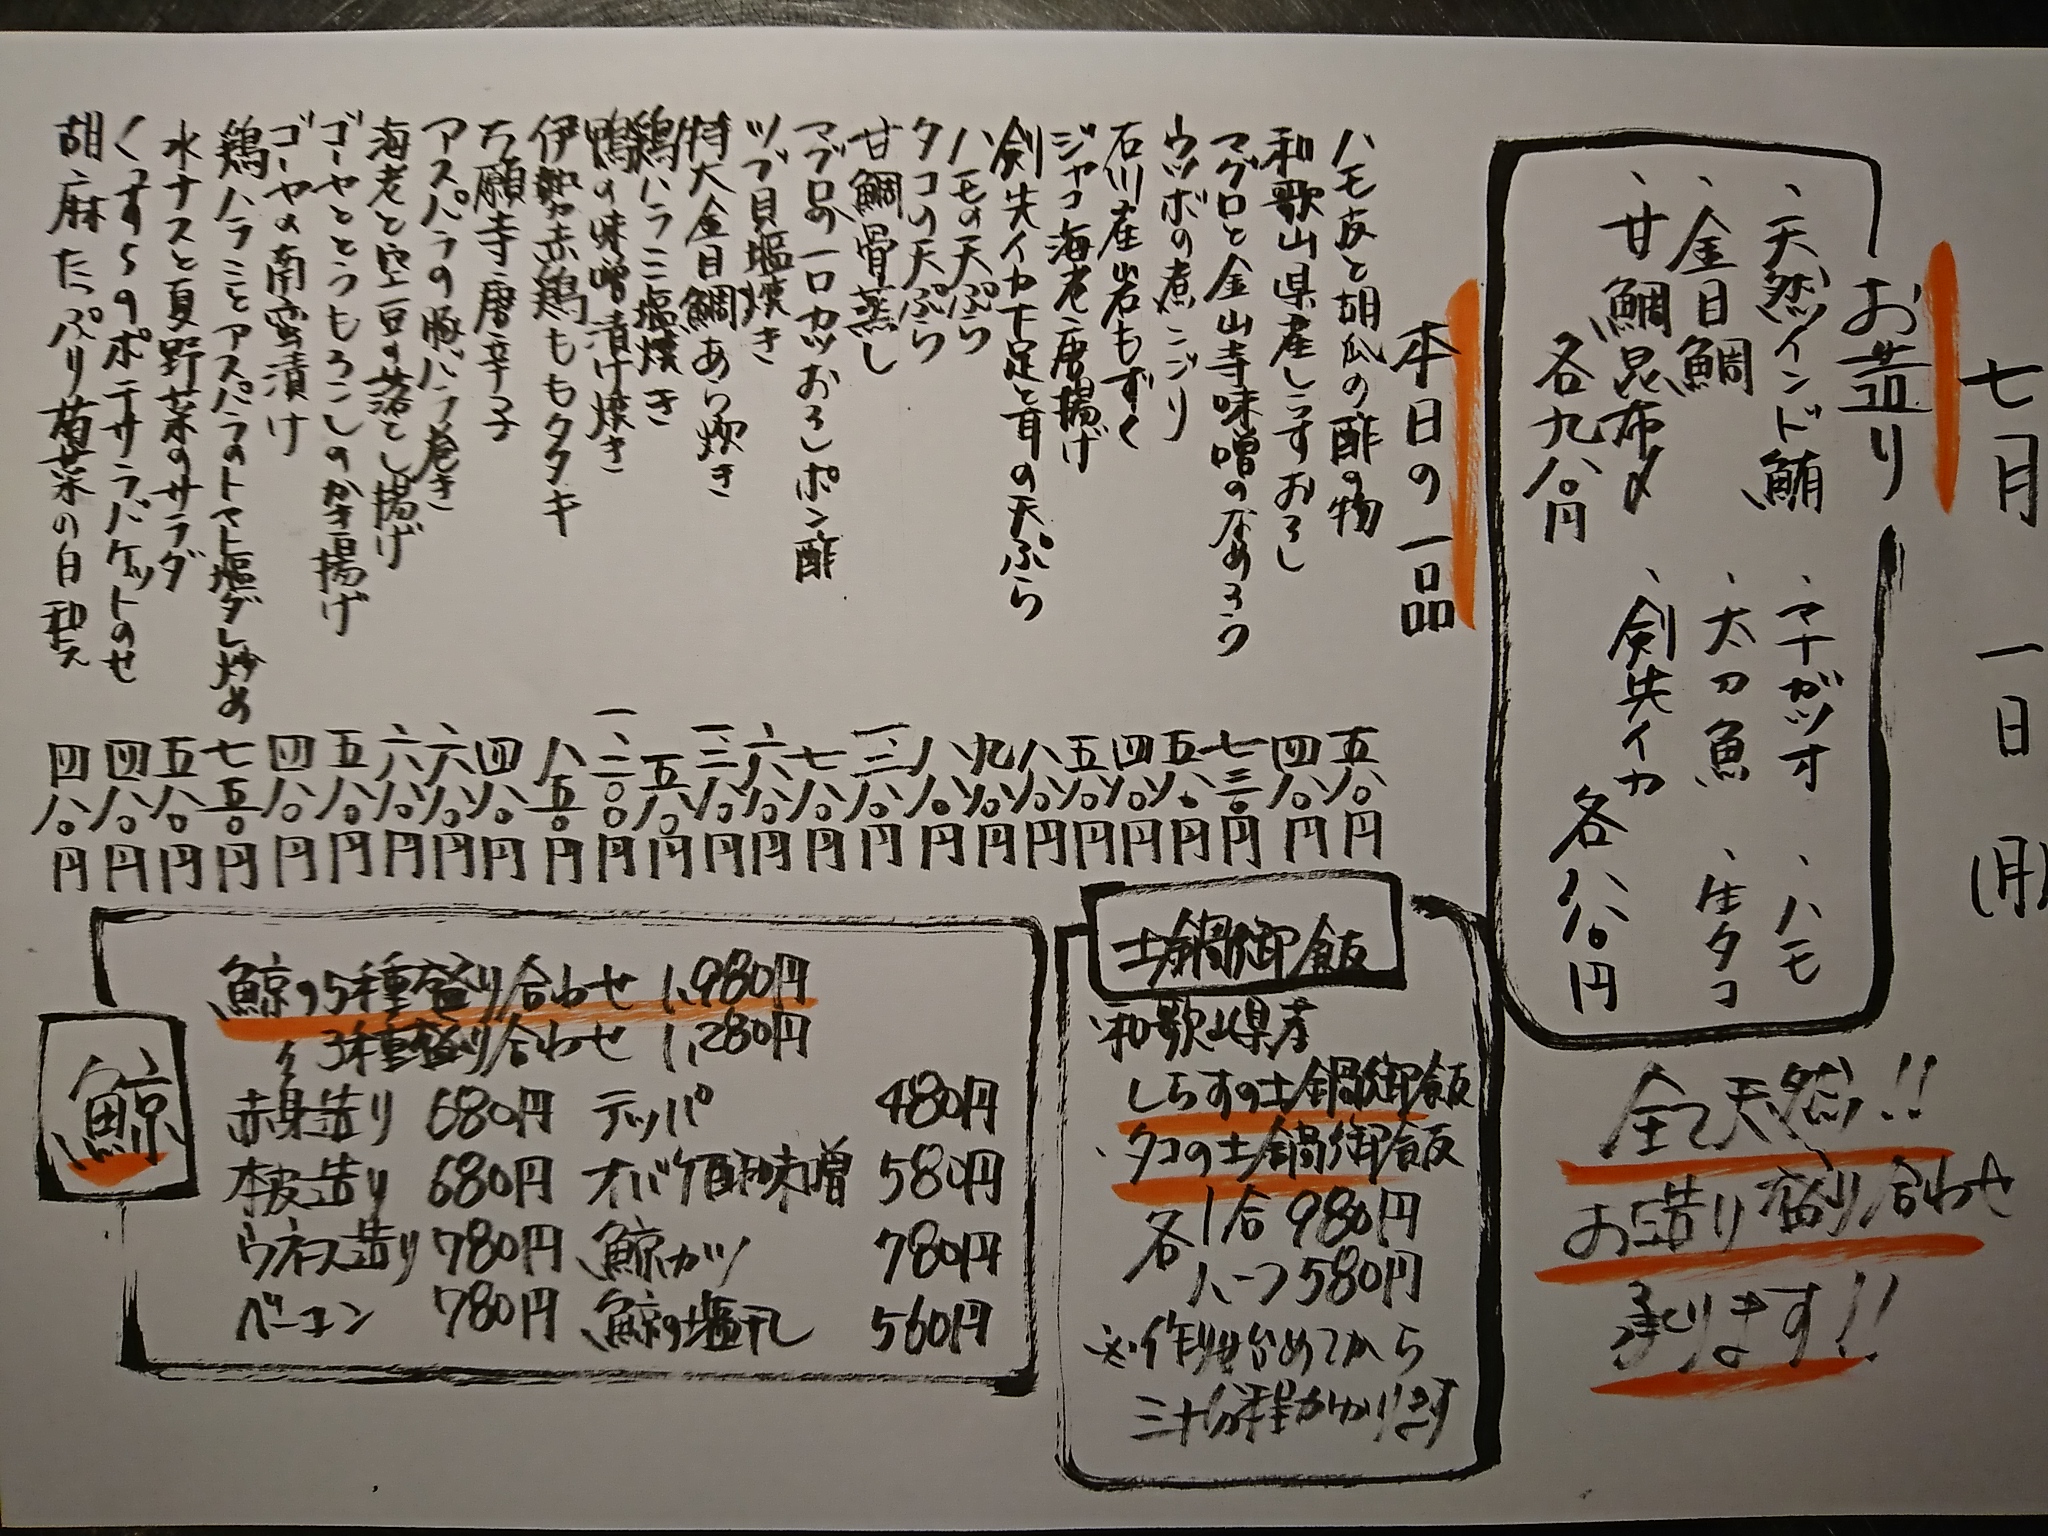 七月 一日 (月)
お造り
、天然インド鮪
、金目鯛
、甘鯛昆布〆
各九八〇円
、マナガツオ
、太刀魚
、剣先イカ
、ハモ
、生タコ
各八八〇円
全て天然!!
お造り盛り合わせ
承ります!!
本日の一品
ハモ皮と胡瓜の酢の物 五八〇円
和歌山県産しらすおろし 四八〇円
マグロと金山寺味噌のなめろう 七三〇円
ウツボの煮こごり 五八〇円
石川産岩もずく 四八〇円
ジャコ海老唐揚げ 五八〇円
剣先イカ下足と耳の天ぷら 八八〇円
ハモの天ぷら 九八〇円
タコの天ぷら 八八〇円
甘鯛骨蒸し 一、三八〇円
マグロの一口カツおろしポン酢 七八〇円
ツブ貝塩焼き 六八〇円
特大金目鯛あら炊き 一、三八〇円
鶏ハラミ塩焼き 五八〇円
鴨の味噌漬け焼き 一、二〇〇円
伊勢赤鶏ももタタキ 八五〇円
万願寺唐辛子 四八〇円
アスパラの豚バラ巻き 六八〇円
海老と空豆の落とし揚げ 六八〇円
ゴーヤととうもろこしのかき揚げ 五八〇円
ゴーヤの南蛮漬け 四八〇円
鶏ハラミとアスパラのトマト塩ダレ炒め 七五〇円
水ナスと夏野菜のサラダ 五八〇円
くずしのポテサラバケットのせ 四八〇円
胡麻たっぷり菊菜の白和え 四八〇円
土鍋御飯
、和歌山県産
しらすの土鍋御飯
、タコの土鍋御飯
各1合 980円
ハーフ 580円
※作り始めてから
三十分程かかります
鯨
鯨の5種盛り合わせ 1,980円
〃 3種盛り合わせ 1,280円
赤身造り 680円 テッパ 480円
本皮造り 680円 オバケ酢味噌 580円
ウネス造り 780円 鯨カツ 780円
ベーコン 780円 鯨の塩干し 560円